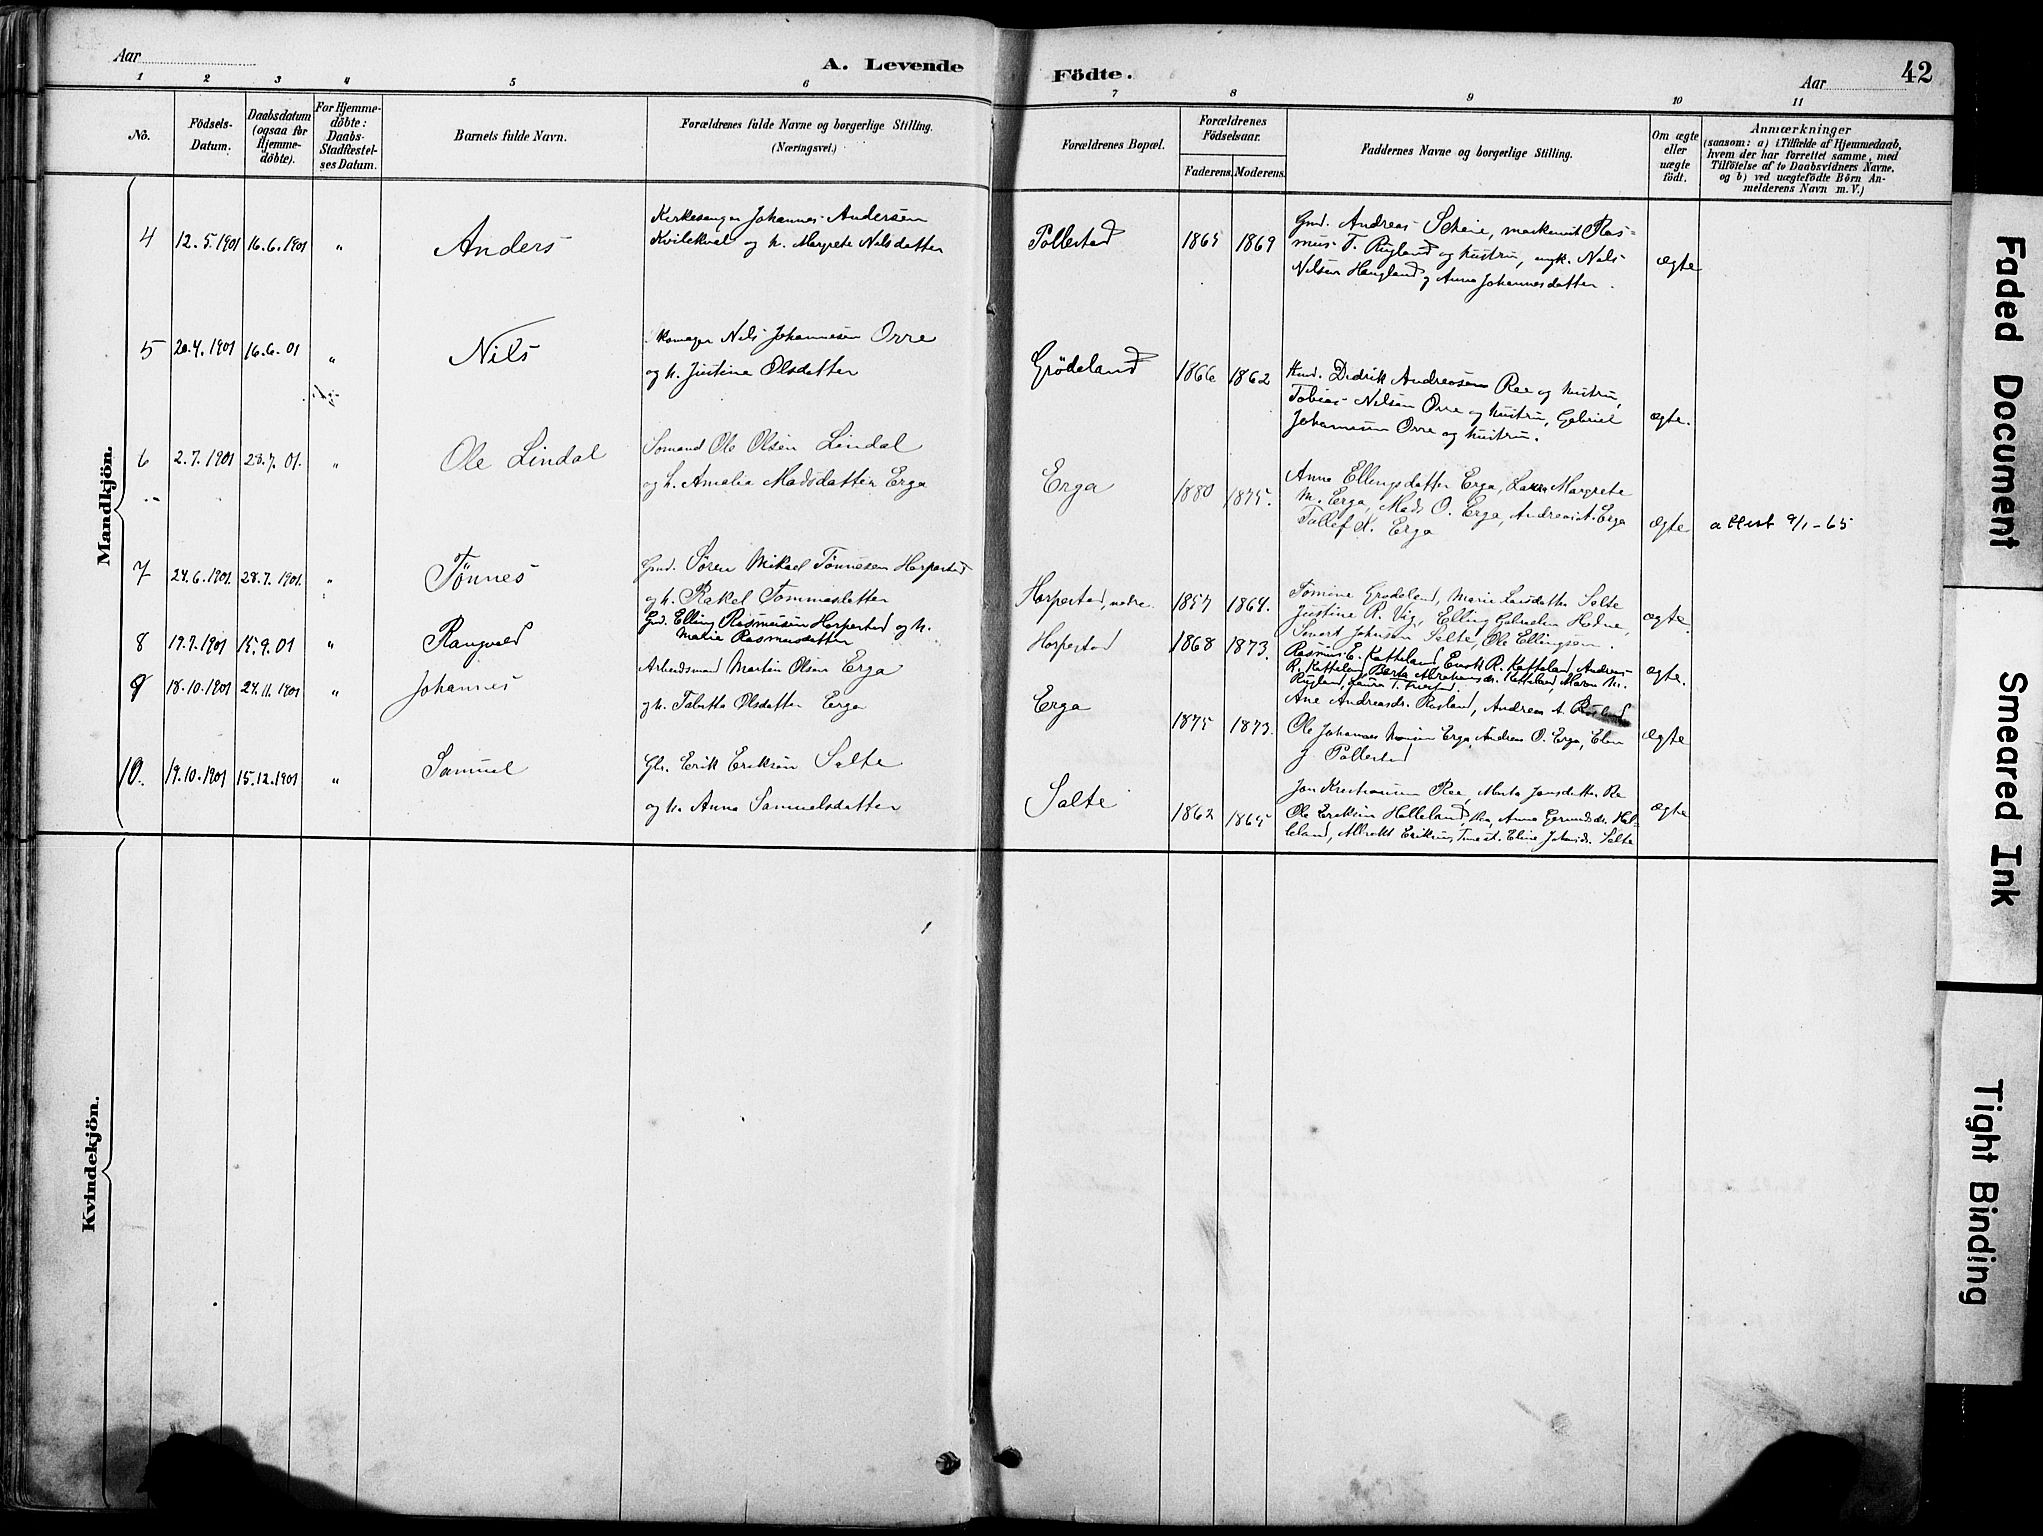 Aar
A. Levende
Födte.
Aar
42
1 2 3 4 5 6 7 8 9 10 11
No.
Födsels-
Datum.
Daabsdatum
(ogsaa for
Hjemme-
döbte).
For Hjemme-
döbte:
Daabs-
Stadfæstel-
ses Datum.
Barnets fulde Navn.
Forældrenes fulde Navne og borgerlige Stilling.
(Næringsvei.)
Forældrenes Bopæl.
Forældrenes
Födselsaar.
Faderens. Moderens.
Faddernes Navne og borgerlige Stilling.
Om ægte
eller
uægte
födt.
Anmærkninger
(saasom: a) i Tilfælde af Hjemmedaab,
hvem der har forrettet samme, med
Tilföielse af to Daabsvidners Navne,
og b) ved uægtefödte Börn An-
melderens Navn m. V.)
Mandkjön.
4 12.5.1901 16.6.1901 " Anders
Kirkesanger Johannes Andersen
Kvilekval og h. Margrete Nilsdatter
Pollestad 1865 1869
Gmd. Andreas Scheie, Ras-
mus T. Rugland og hustru, ungk. Nils
Nilsen Haugland og Anna Johannesdatter.
ægte
5 20.4.1901 16.6.01 " Nils
Nils Johannesen Orre
og h. Justina Olsdatter
Grödeland 1866 1862
Didrik Andreasen Ree og hustru,
Tobias Nilsen Orre og hustru, Gabriel
Johannesen Orre og hustru.
ægte.
6 2.7.1901 28.7.01. " Ole Lindal
Sömand Ole Olsen Lindal
og h. Amalia Madsdatter Erga
Erga 1880 1875.
Anna Ellingsdatter Erga, Margrete
M. Erga, Mads O. Erga, Andreas A. Erga
Tollef N. Erga
ægte attest 9/1-65
7 24.6.1901. 28.7.1901. " Tönnes
Gmd. Sören Mikael Tönnesen Horpestad
og h. Rakel Tommesdatter
Horpestad, nedre. 1857 1864.
Tomine Grödeland, Marie Larsdatter Salte
Justine R. Vig, Elling Gabrielsen Hodne,
Johnsen Salte, Ole Ellingsen.
ægte.
8 19.7.1901 15.9.01 " Rangvald
Gmd. Elling Rasmussen Horpestad og h.
Malie Rasmusdatter
Horpestad 1868 1873.
Rasmus E. Katteland, Enok R. Katteland, Andreas
R. Katteland, Berta Abrahamsdr. Katteland, Maren M.
Rugland, Laura T.
ægte.
9 18.10.1901 24.11.1901 " Johannes
Arbeidsmand Martin Olsen Erga
og h. Talette Olsdatter Erga
Erga 1875 1873.
Ane Andreasdr. Rugland, Andreas A.
Ole Johannes Erga, Andreas O. Erga, Elen
J. Pollestad
ægte
10. 19.10.1901 15.12.1901 " Samuel
Gbr. Erik Eriksen Salte
og h. Anna Samuelsdatter
Salte 1862 1865
Jon Kristiansen Ree, Marta Jonsdatter Re
Ole Eriksen Helleland, Anna Hel-
leland, Albrekt Eriksen, Eline Salte
ægte
Kvindekjön.
Faded Document
Smeared Ink
Tight Binding